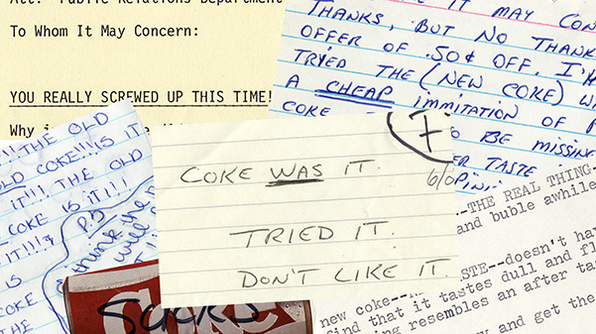 Public Relations Department
To Whom It May Concern:
YOU REALLY SCREWED UP THIS TIME!
Why
IT MAY CON
THANKS, BUT NO THANK
OFFER OF .50¢ OFF. I'
TRIED THE (NEW COKE)
A CHEAP immitation OF
COKE
TO BE MISSIN
TASTE
!!! THE OLD
OLD COKE!!! IS
IT!!! THE OLD
COKE IS IT!!!
IT!!!
COKE
IS
P.S
think the
7
6/0
COKE WAS IT.
TRIED IT.
DON'T LIKE IT.
SUCKS
--THE REAL THING--
and buble awhile
STE--doesn't ha
new coke--
find that it tastes dull and fl
ing resembles an after ta
and get the